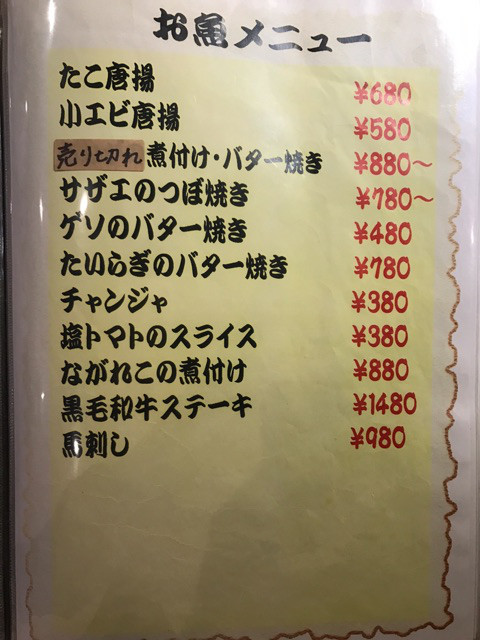 お魚メニュー
たこ唐揚 ¥680
小エビ唐揚 ¥580
売り切れ 煮付け・バター焼き ¥880～
サザエのつぼ焼き ¥780～
ゲソのバター焼き ¥480
たいらぎのバター焼き ¥780
チャンジャ ¥380
塩トマトのスライス ¥380
ながれこの煮付け ¥880
黒毛和牛ステーキ ¥1480
馬刺し ¥980